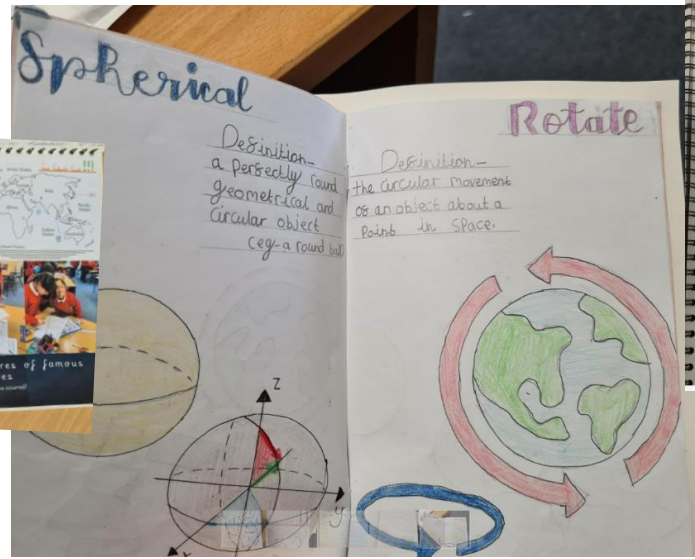 Spherical
Definition-
a perfectly round
geometrical and
circular object
(eg-a round ball)
Z
y
x
Rotate
Definition-
the circular movement
of an object about a
Point in Space.
res of famous
es